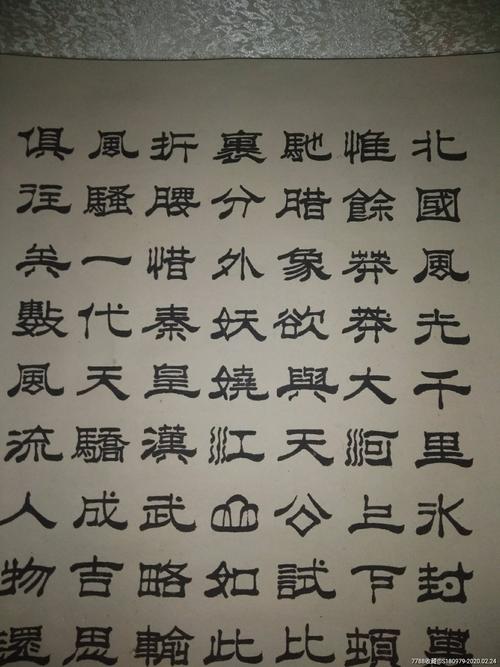 北國風光千里氷封萬
惟餘莽莽大河上下頓
馳腊象欲與天公試比
裏分外妖嬈江山如此
折腰惜秦皇漢武略輸
風騷一代天驕成吉思
俱往矣數風流人物還
7788收藏@S180979-2020.02.24